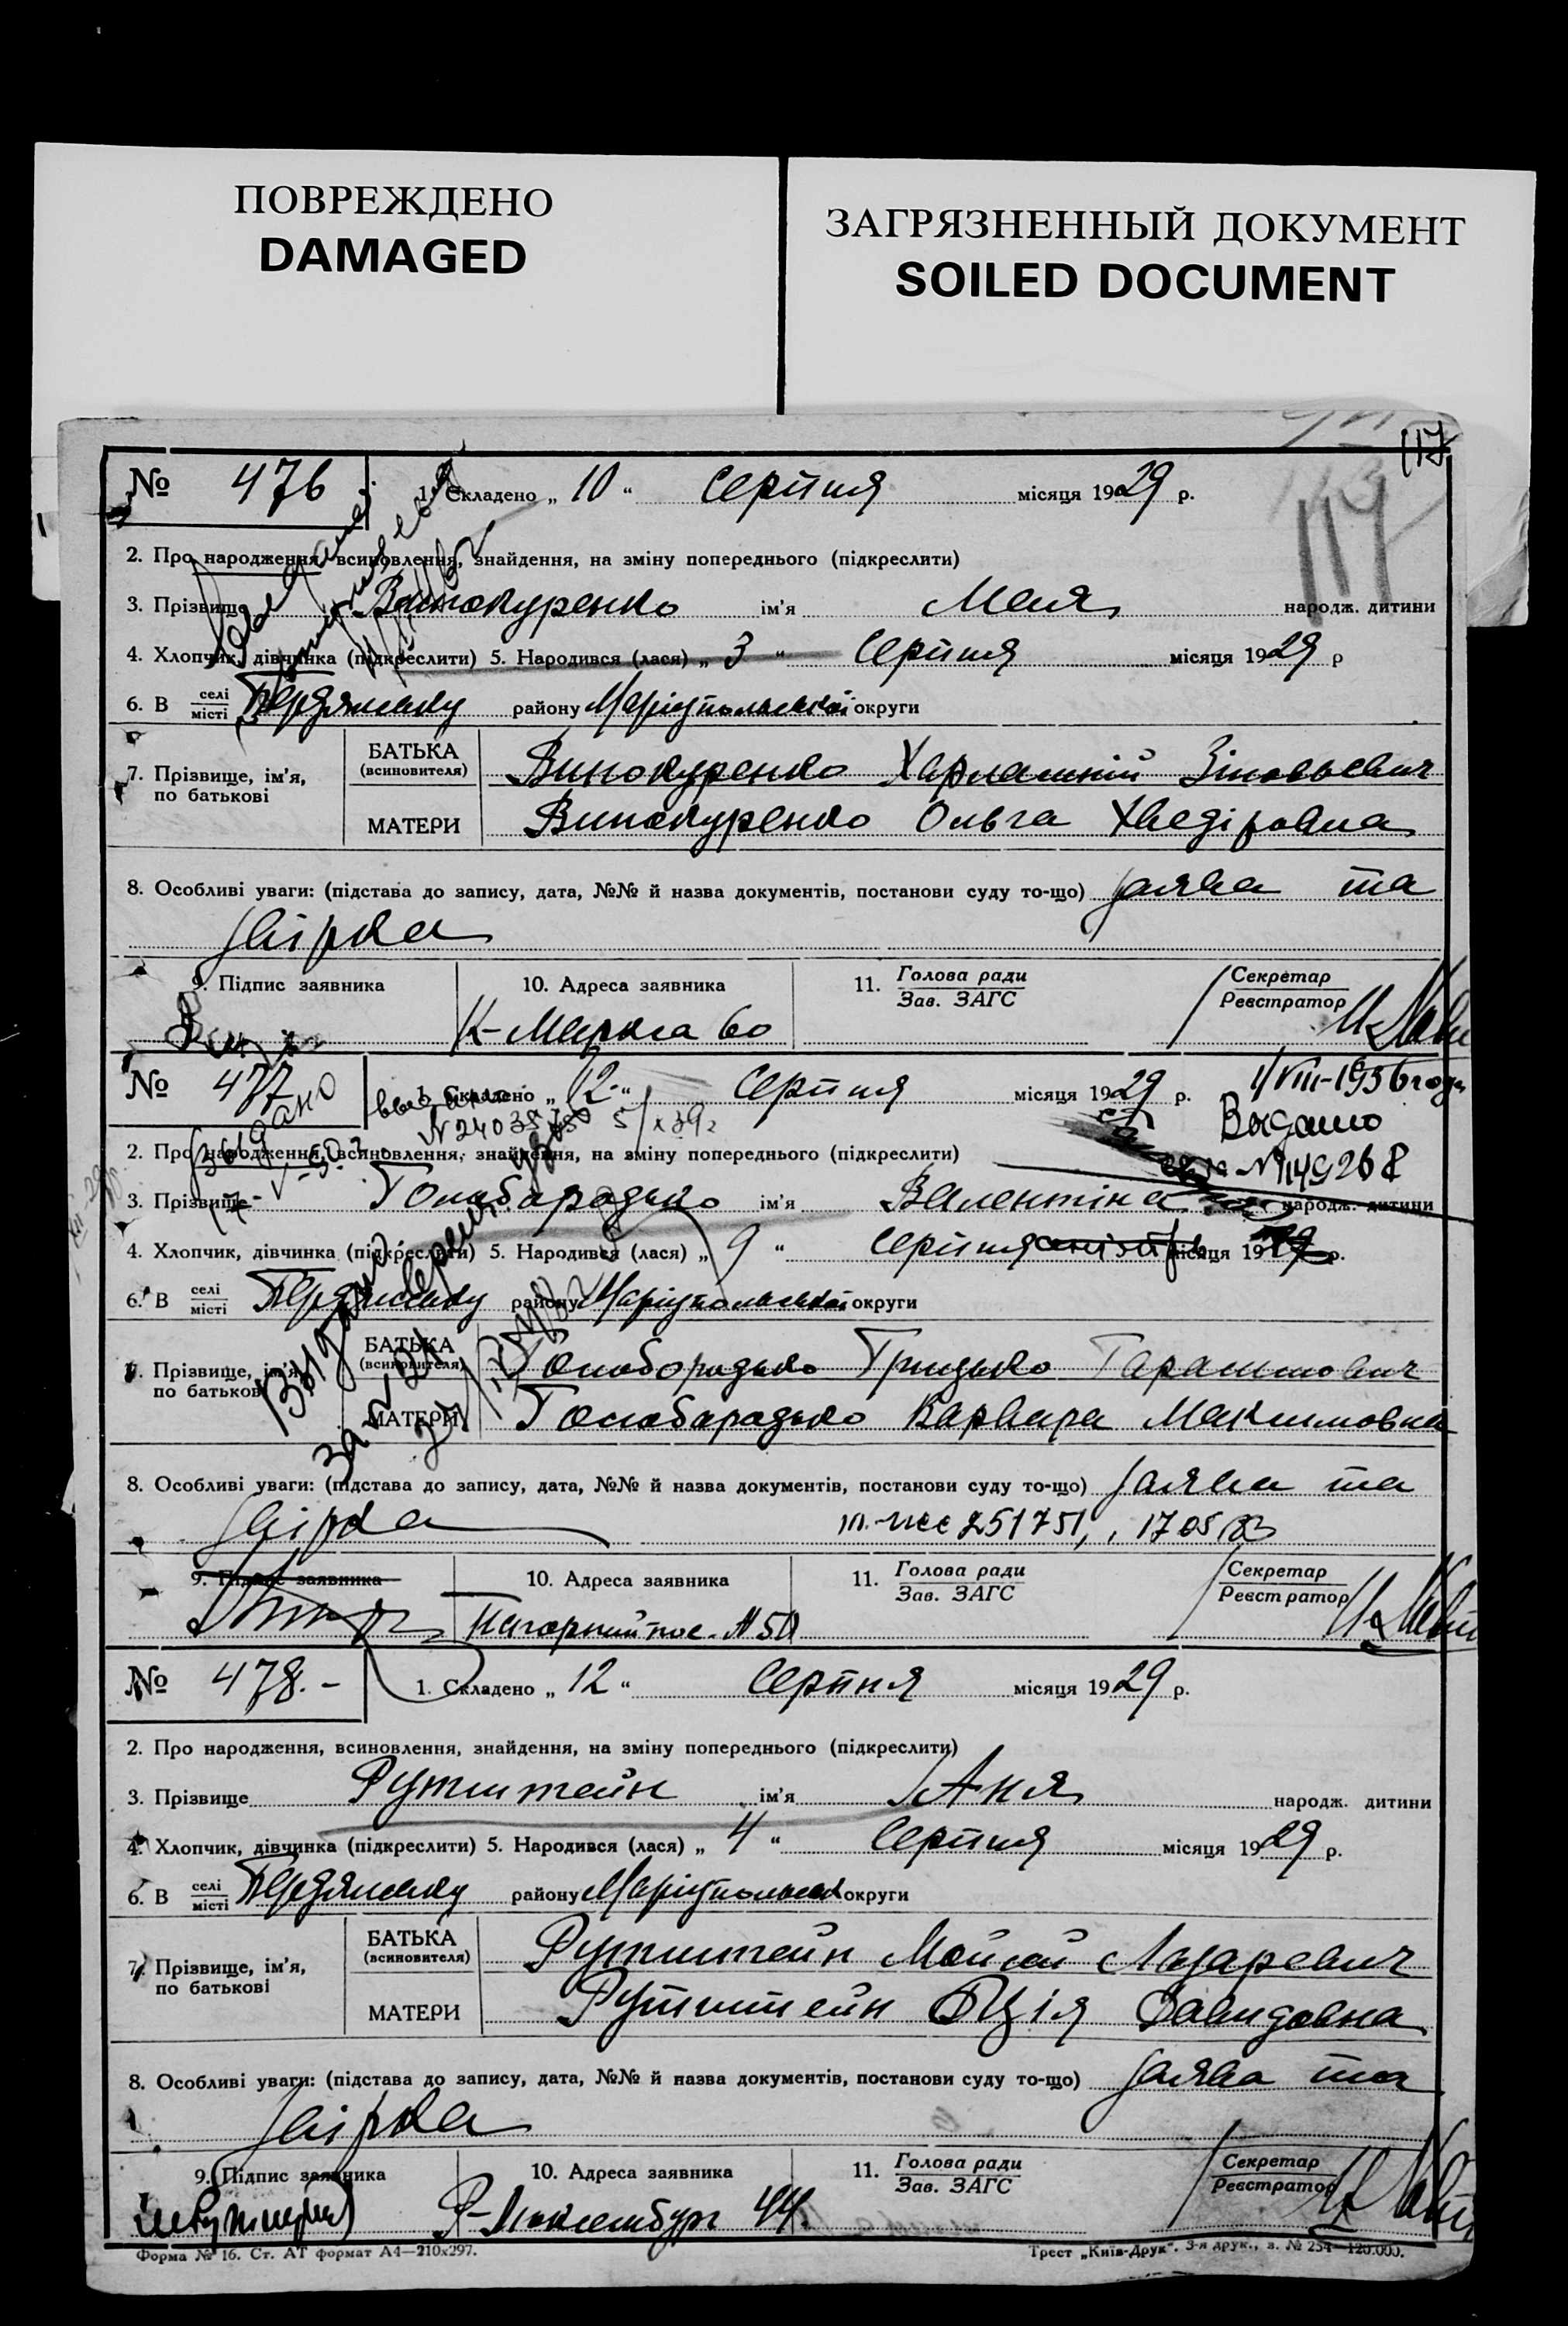 ПОВРЕЖДЕНО
DAMAGED
ЗАГРЯЗНЕННЫЙ ДОКУМЕНТ
SOILED DOCUMENT
117
117
№ 476
1. Складено „ 10 “ Серпня місяця 1929 р.
2. Про народження, всиновлення, знайдення, на зміну попереднього (підкреслити)
3. Прізвище Винокуренко ім'я Мая народж. дитини
4. Хлопчик, дівчинка (підкреслити) 5. Народився (лася) „ 3 “ Серпня місяця 1929 р
6. В селі місті Бердянську району Маріупольської округи
7. Прізвище, ім'я, по батькові
БАТЬКА (всиновителя) Винокуренко Харлампій Зіновьевич
МАТЕРИ Винокуренко Ольга Хведіровна
8. Особливі уваги: (підстава до запису, дата, №№ й назва документів, постанови суду то-що) заява та
звірка
9. Підпис заявника
10. Адреса заявника
11. Голова ради Зав. ЗАГС
Секретар Реєстратор
К-Маркса 60
№ 477
1. Складено „ 12 “ Серпня місяця 1929 р.
1/VIII-1956 года
Выдано
№ 149268
выдано
5/X 39 г
2. Про народження, всиновлення, знайдення, на зміну попереднього (підкреслити)
3. Прізвище Голобородько ім'я Валентіна народж. дитини
4. Хлопчик, дівчинка (підкреслити) 5. Народився (лася) „ 9 “ Серпня місяця 1929 р.
6. В селі місті Бердянську району Маріупольської округи
7. Прізвище, ім'я, по батькові
БАТЬКА (всиновителя) Голобородько Грицько Гарасимович
МАТЕРИ Голобородько Варвара Максимовна
8. Особливі уваги: (підстава до запису, дата, №№ й назва документів, постанови суду то-що) заява та
звірка
251751, 17 05 83
9. Підпис заявника
10. Адреса заявника
11. Голова ради Зав. ЗАГС
Секретар Реєстратор
Нагорный пос. № 50
№ 478.-
1. Складено „ 12 “ Серпня місяця 1929 р.
2. Про народження, всиновлення, знайдення, на зміну попереднього (підкреслити)
3. Прізвище Рутштейн ім'я Аня народж. дитини
4. Хлопчик, дівчинка (підкреслити) 5. Народився (лася) „ 4 “ Серпня місяця 1929 р.
6. В селі місті Бердянську району Маріупольської округи
7. Прізвище, ім'я, по батькові
БАТЬКА (всиновителя) Рутштейн Мойсей Лазаревич
МАТЕРИ Рутштейн Давидовна
8. Особливі уваги: (підстава до запису, дата, №№ й назва документів, постанови суду то-що) заява та
звірка
9. Підпис заявника
10. Адреса заявника
11. Голова ради Зав. ЗАГС
Секретар Реєстратор
Р-Люксембург 44.
Форма № 16. Ст. АТ формат А4—210x297.
Трест „Київ-Друк“. 3-я друк., з. № 254—120.000.